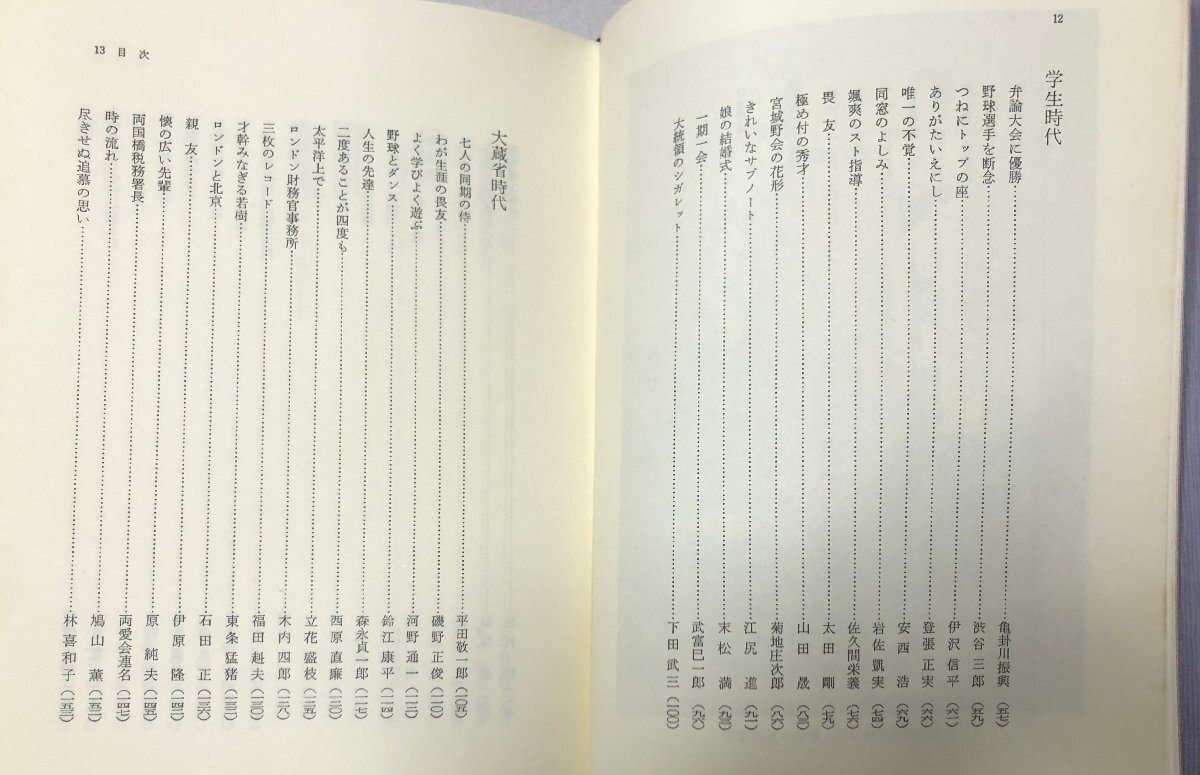 12
学生時代
弁論大会に優勝 亀卦川振興（五七）
野球選手を断念 渋谷三郎（五九）
つねにトップの座 伊沢信平（六一）
ありがたいえにし 登張正実（六六）
唯一の不覚 安西浩（六九）
同窓のよしみ 岩佐凱実（七四）
颯爽のスト指導 佐久間栄義（七六）
畏友 太田剛（七九）
極め付の秀才 山田晟（八三）
宮城野会の花形 菊地庄次郎（八六）
きれいなサブノート 江尻進（九一）
娘の結婚式 末松満（九三）
一期一会 武富巳一郎（九六）
大統領のシガレット 下田武三（一〇〇）
13 目次
大蔵省時代
七人の同期の侍 平田敬一郎（一〇五）
わが生涯の畏友 磯野正俊（一一〇）
よく学びよく遊ぶ 河野通一（一一二）
野球とダンス 鈴江康平（一一四）
人生の先達 森永貞一郎（一一七）
二度あることが四度も 西原直廉（一二〇）
太平洋上で 立花盛枝（一二五）
ロンドン財務官事務所 木内四郎（一二八）
三枚のレコード 福田赳夫（一三〇）
才幹みなぎる若樹 東条猛猪（一三三）
ロンドンと北京 石田正（一三六）
親友 伊原隆（一四二）
懐の広い先輩 原純夫（一四五）
両国橋税務署長 両愛会連名（一四七）
時の流れ 鳩山薫（一五二）
尽きせぬ追慕の思い 林喜和子（一五三）